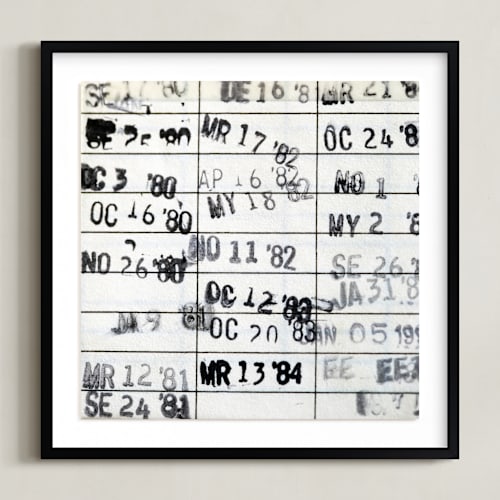 SE 17 '80
SE '80
OC 3 '80
OC 16 '80
NO 26 '80
JA 9 '81
MR 12 '81
SE 24 '81
DE 16 '8
MR 17 '82
AP 16 '82
MY 18 '82
NO 11 '82
OC 12 '83
OC 20 '83
MR 13 '84
MR 21 '8
OC 24 '8
NO 1
MY 2 '8
SE 26
JA 31 '8
05 199
EE EE